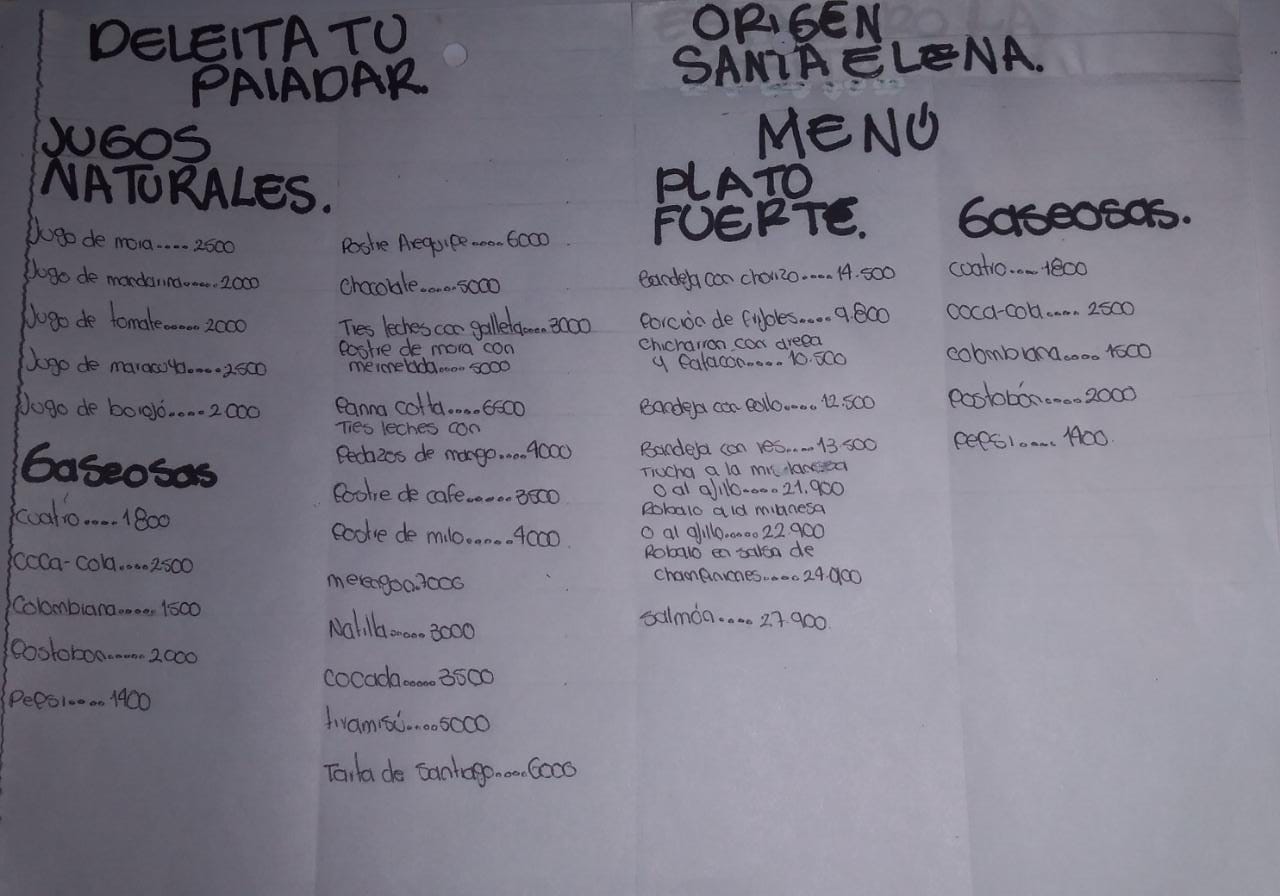 DELEITA TU
PALADAR.
JUGOS
NATURALES.
Jugo de mora....2500
Jugo de mandarina.....2000
Jugo de tomate.....2000
Jugo de maracuya.....2500
Jugo de borojó.....2000
Gaseosas
cuatro....1800
coca-cola....2500
Colombiana.....1500
Postobon......2000
Pepsi.....1400
Postre Arequipe.....6000
chocolate......5000
Tres leches con galleta....3000
Postre de mora con
mermelada....5000
Panna cotta....6500
Tres leches con
Pedazos de mango....4000
Postre de cafe......3500
Postre de milo.....4000
merengon.7000
Natilla......3000
cocada.....3500
tiramisú.....5000
Tarta de Santiago.....6000
ORIGEN
SANTA ELENA.
MENÚ
PLATO
FUERTE.
Bandeja con chorizo....14.500
Porción de frijoles....9.800
chicharron con arepa
y Patacon.....10.500
Bandeja con Pollo....12.500
Bandeja con res....13.500
Trucha a la milanesa
o al ajillo....21.900
Robalo a la milanesa
o al ajillo.....22.900
Robalo en salsa de
champiniones.....24.900
salmón....27.900
Gaseosas.
cuatro....1800
coca-cola.....2500
colombiana.....1500
Postobón.....2000
Pepsi.....1400